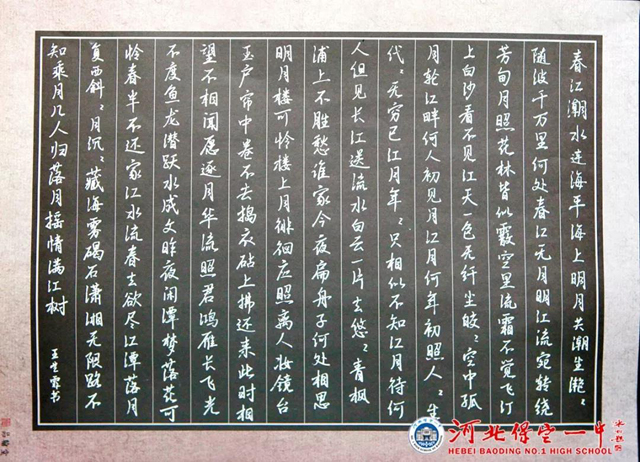 春江潮水连海平海上明月共潮生滟〻
随波千万里何处春江无月明江流宛转绕
芳甸月照花林皆似霰空里流霜不觉飞汀
上白沙看不见江天一色无纤尘皎〻空中孤
月轮江畔何人初见月江月何年初照人〻生
代〻无穷已江月年〻只相似不知江月待何
人但见长江送流水白云一片去悠〻青枫
浦上不胜愁谁家今夜扁舟子何处相思
明月楼可怜楼上月徘徊应照离人妆镜台
玉户帘中卷不去捣衣砧上拂还来此时相
望不相闻愿逐月华流照君鸿雁长飞光
不度鱼龙潜跃水成文昨夜闲潭梦落花可
怜春半不还家江水流春去欲尽江潭落月
复西斜〻月沉〻藏海雾碣石潇湘无限路不
知乘月几人归落月摇情满江树
河北保定一中
HEBEI BAODING NO.1 HIGH SCHOOL